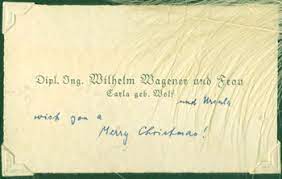 Dipl. Ing. Wilhelm Wagener und Frau
Carla geb. Wolf
und Ursula
wish you a
Merry Christmas!